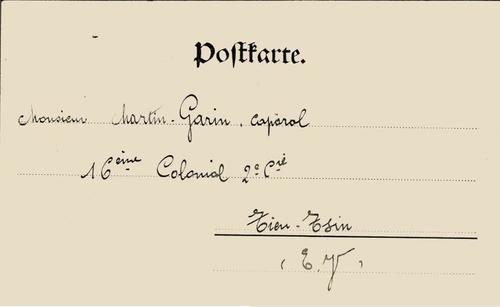 Postkarte.
Monsieur Martin-Garin, caporal
16ème Colonial 2e Cie
Tien-Tsin
(E.V)